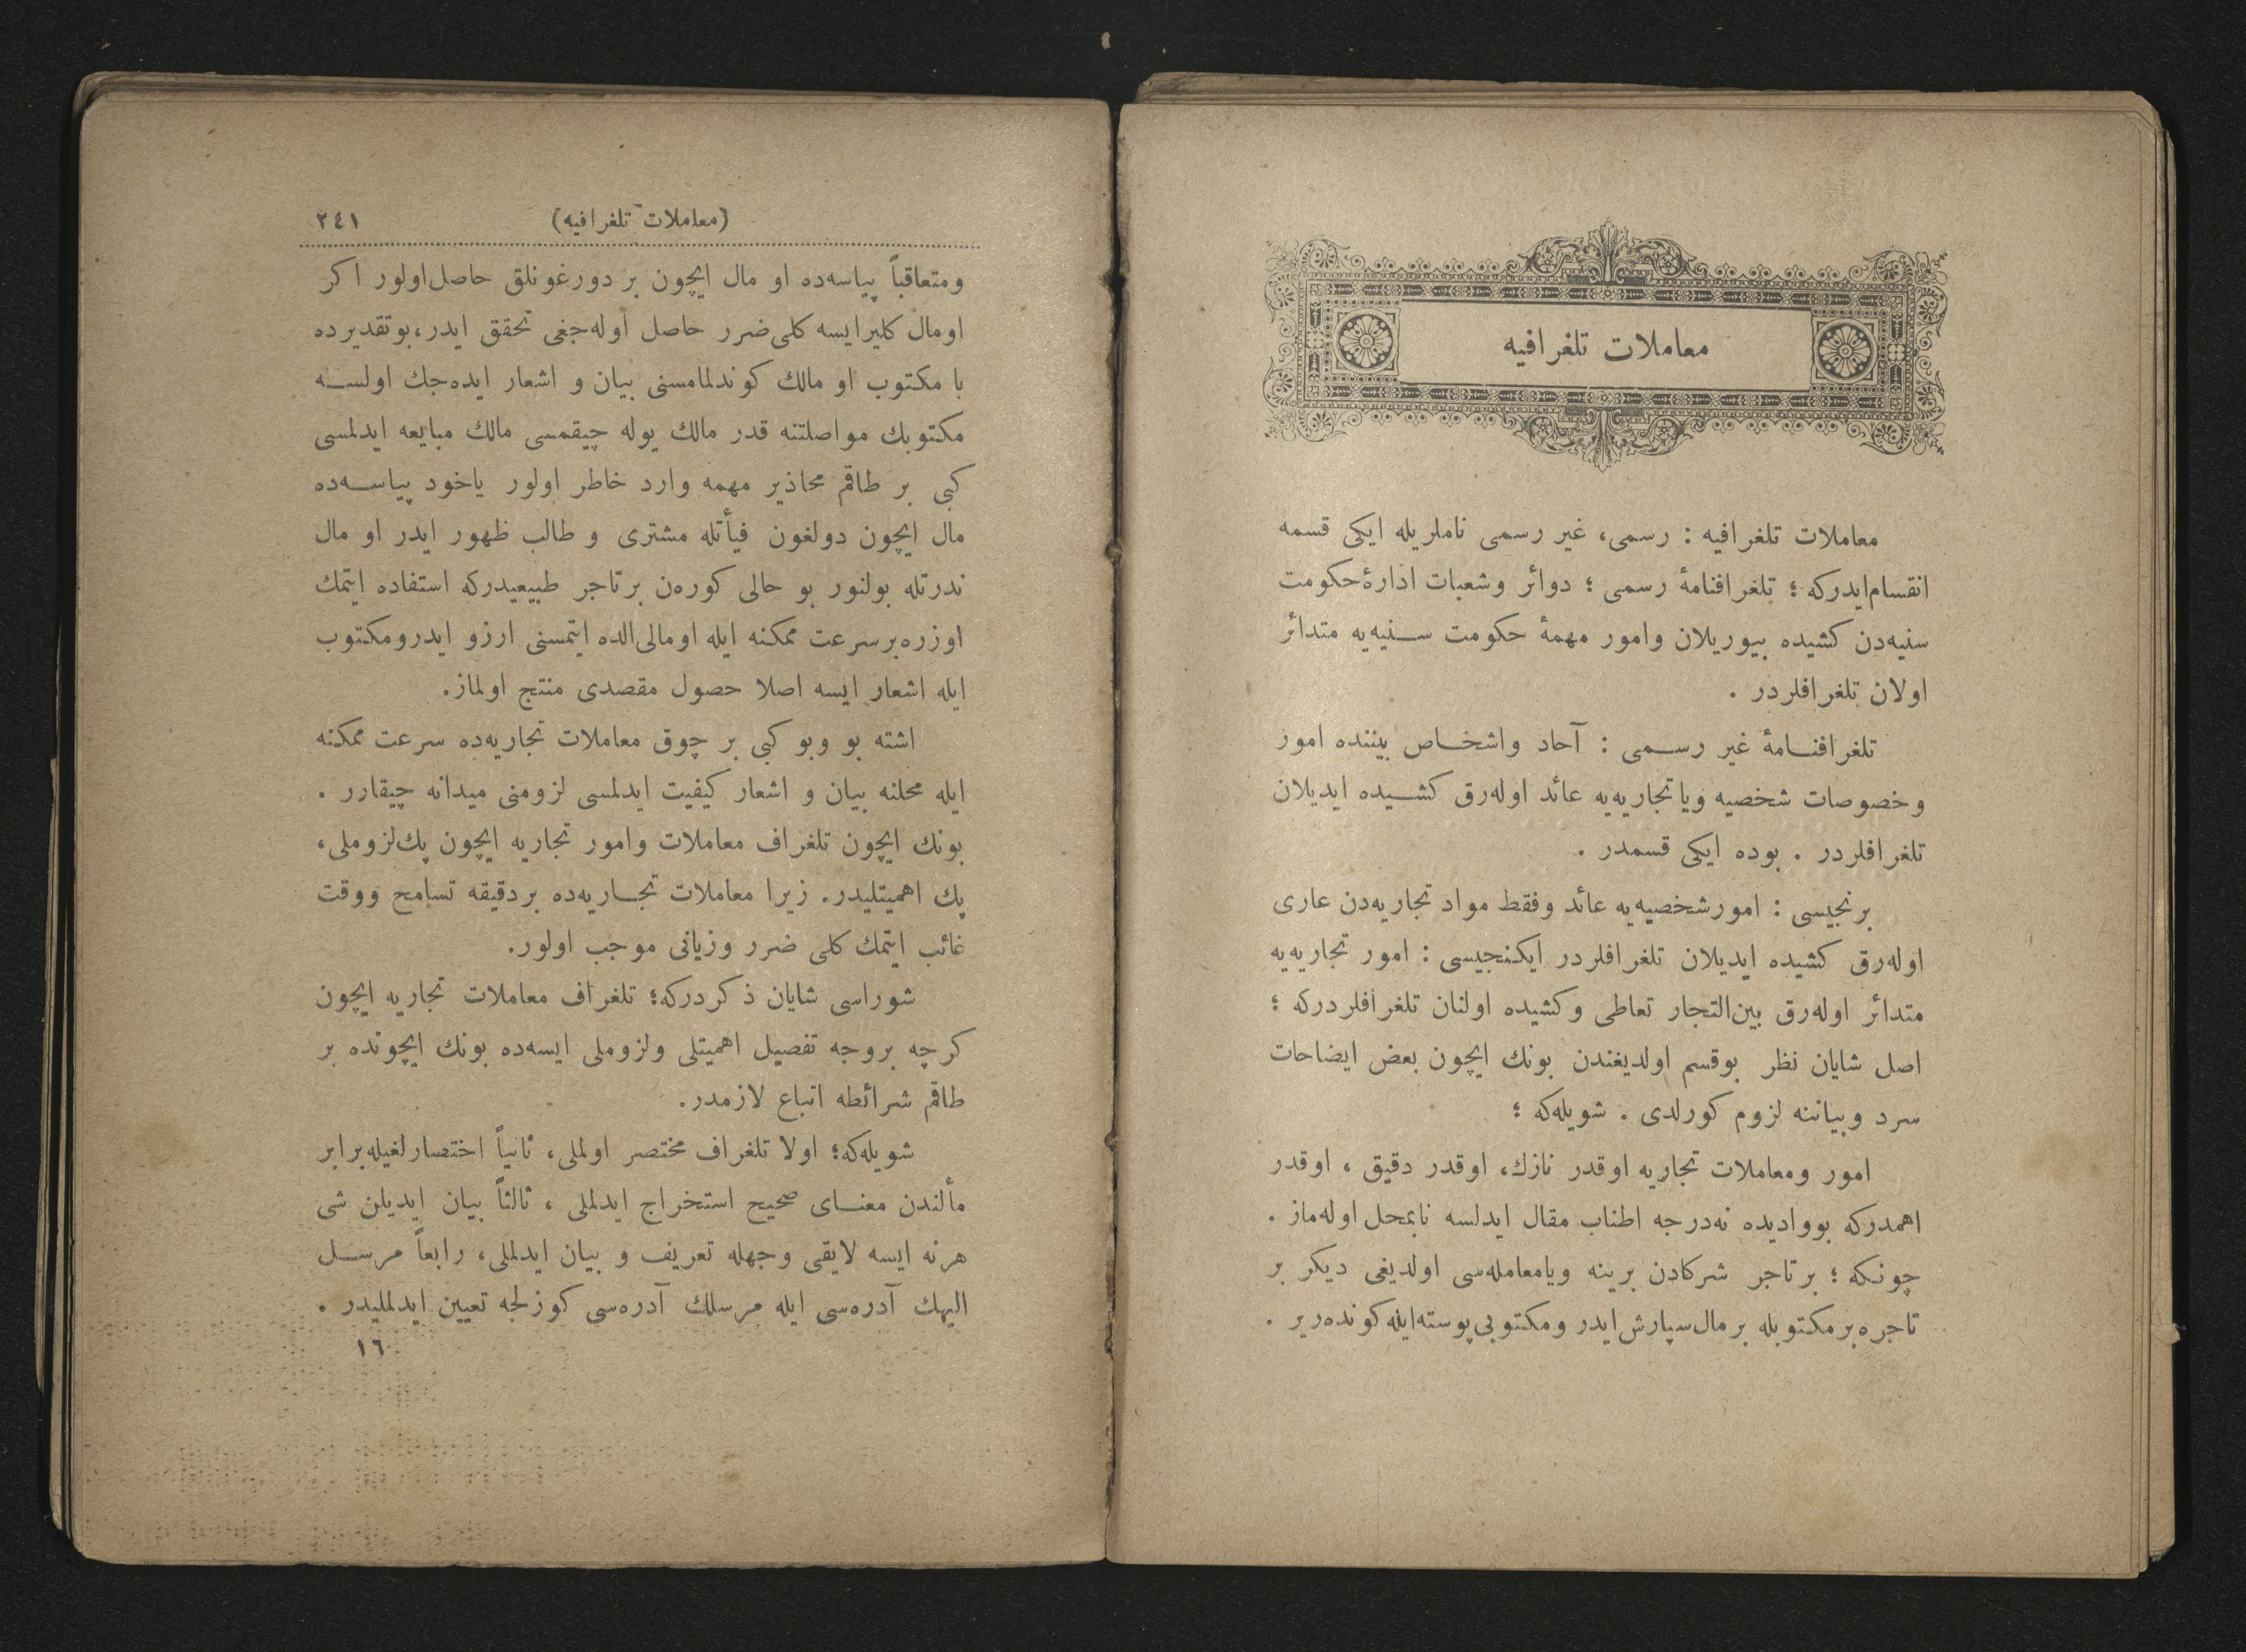 معاملات تلغرافیه
معاملات تلغرافیه : رسمی، غیر رسمی ناملریله ایکی قسمه
انقسام‌ایدرکه ؛ تلغرافنامهٔ رسمی ؛ دوائر وشعبات ادارهٔ‌حکومت
سنیه‌دن کشیده بیوریلان وامور مهمهٔ حکومت سـنیه‌یه متدائر
اولان تلغرافلردر .
تلغرافنـامهٔ غیر رسـمی : آحاد واشخـاص بیننده امور
وخصوصات شخصیه ویاتجاریه‌یه عائد اوله‌رق کشـیده ایدیلان
تلغرافلردر . بوده ایکی قسمدر .
برنجیسی : امورشخصیه‌یه عائد وفقط مواد تجاریه‌دن عاری
اوله‌رق کشیده ایدیلان تلغرافلردر ایکنجیسی : امور تجاریه‌یه
متدائر اوله‌رق بین‌التجار تعاطی وکشیده اولنان تلغرافلردرکه ؛
اصل شایان نظر بوقسم اولدیغندن بونك ایچون بعض ایضاحات
سرد وبیاننه لزوم کورلدی . شویله‌که ؛
امور ومعاملات تجاریه اوقدر نازك، اوقدر دقیق ، اوقدر
اهمدرکه بووادیده نه‌درجه اطناب مقال ایدلسه نابمحل اوله‌ماز .
چونکه ؛ برتاجر شرکادن برینه ویامعامله‌سی اولدیغی دیکر بر
تاجره‌برمکتوبله برمال‌سپارش‌ایدر ومکتوبی‌پوسته‌ایله‌کونده‌ریر .
(معاملات تلغرافیه) ٢٤١
ومتعاقباً پیاسه‌ده او مال ایچون بر دورغونلق حاصل‌اولور اکر
اومال کلیرایسه کلی‌ضرر حاصل اوله‌جغی تحقق ایدر،بوتقدیرده
با مکتوب او مالك کوندلمامسنی بیان و اشعار ایده‌جك اولسـه
مکتوبك مواصلتنه قدر مالك یوله چیقمسی مالك مبایعه ایدلمسی
کبی بر طاقم محاذیر مهمه وارد خاطر اولور یاخود پیاسـه‌ده
مال ایچون دولغون فیأتله مشتری و طالب ظهور ایدر او مال
ندرتله بولنور بو حالی کوره‌ن برتاجر طبیعیدرکه استفاده ایتمك
اوزره‌برسرعت ممکنه ایله اومالی‌الده ایتمسنی ارزو ایدرومکتوب
ایله اشعار ایسه اصلا حصول مقصدی منتج اولماز.
اشته بو وبو کبی بر چوق معاملات تجاریه‌ده سرعت ممکنه
ایله محلنه بیان و اشعار کیفیت ایدلمسی لزومنی میدانه چیقارر .
بونك ایچون تلغراف معاملات وامور تجاریه ایچون پك‌لزوملی،
پك اهمیتلیدر. زیرا معاملات تجـاریه‌ده بردقیقه تسامح ووقت
غائب ایتمك کلی ضرر وزیانی موجب اولور.
شوراسی شایان ذکردرکه؛ تلغراف معاملات تجاریه ایچون
کرچه بروجه تفصیل اهمیتلی ولزوملی ایسه‌ده بونك ایچونده بر
طاقم شرائطه اتباع لازمدر.
شویله‌که؛ اولا تلغراف مختصر اولملی، ثانیاً اختصارلغیله‌برابر
مألندن معنـای صحیح استخراج ایدلملی ، ثالثاً بیان ایدیلن شی
هرنه ایسه لایقی وجهله تعریف و بیان ایدلملی، رابعاً مرسـل
الیهك آدره‌سی ایله مرسلك آدره‌سی کوزلجه تعیین ایدلملیدر .
١٦